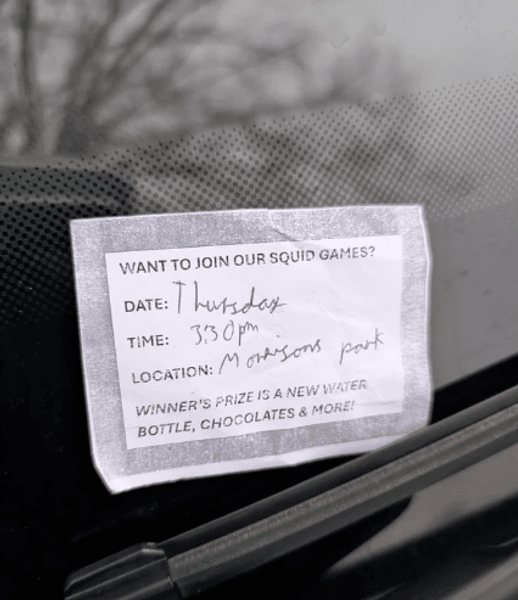 WANT TO JOIN OUR SQUID GAMES?
DATE: Thursday
TIME: 3:30pm
LOCATION: Morrisons park
WINNER'S PRIZE IS A NEW WATER
BOTTLE, CHOCOLATES & MORE!